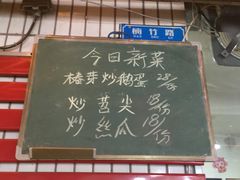 楠竹路
今日新菜
椿芽炒鹅蛋 28/份
炒苕尖 18/份
炒丝瓜 18/份